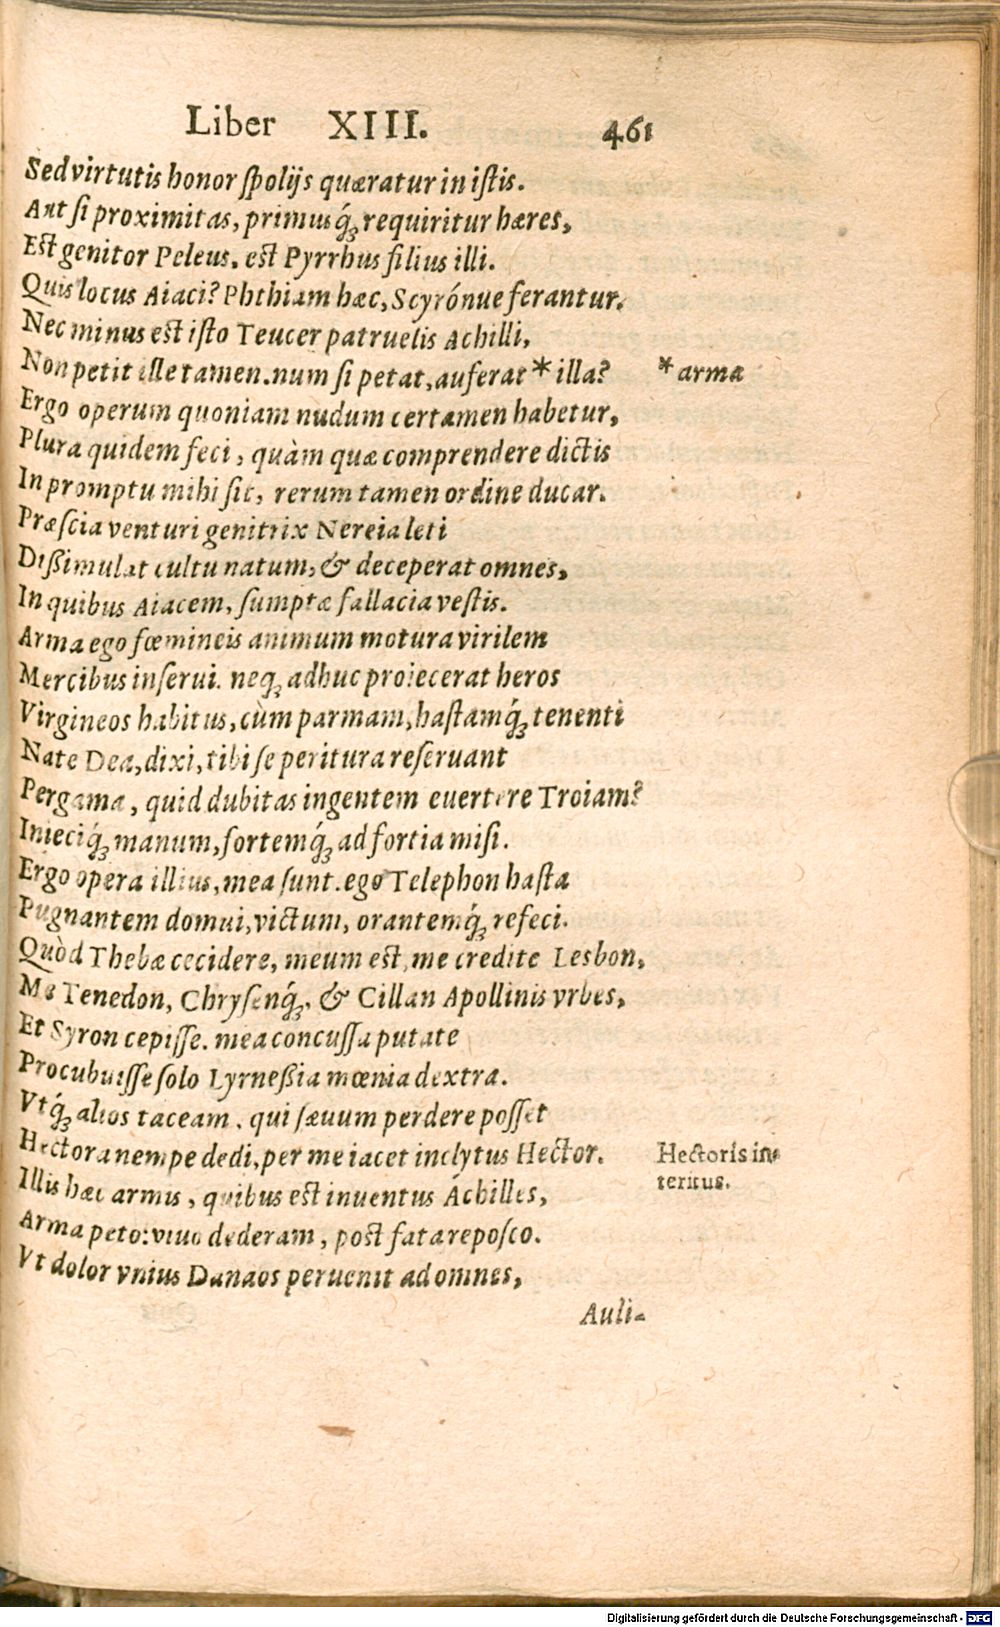 Liber XIII. 461
Sed virtutis honor spolijs quæratur in istis.
Aut si proximitas, primusq́; requiritur hæres,
Est genitor Peleus. est Pyrrhus filius illi.
Quis locus Aiaci? Phthiam hæc, Scyrónue ferantur.
Nec minus est isto Teucer patruelis Achilli,
Non petit ille tamen. num si petat, auferat * illa? * arma
Ergo operum quoniam nudum certamen habetur,
Plura quidem feci, quàm quæ comprendere dictis
In promptu mihi sit, rerum tamen ordine ducar.
Præscia venturi genitrix Nereia leti
Dißimulat cultu natum, & deceperat omnes,
In quibus Aiacem, sumptæ fallacia vestis.
Arma ego fœmineis animum motura virilem
Mercibus inserui. neq; adhuc proiecerat heros
Virgineos habitus, cùm parmam, hastamq́; tenenti
Nate Dea, dixi, tibi se peritura reseruant
Pergama, quid dubitas ingentem euertere Troiam?
Inieciq́; manum, fortemq́; ad fortia misi.
Ergo opera illius, mea sunt. ego Telephon hasta
Pugnantem domui, victum, orantemq́; refeci.
Quòd Thebæ cecidere, meum est, me credite Lesbon,
Me Tenedon, Chrysenq́;, & Cillan Apollinis vrbes,
Et Syron cepisse. mea concussa putate
Procubuisse solo Lyrneßia mœnia dextra.
Vtq́; alios taceam, qui sæuum perdere posset
Hectora nempe dedi, per me iacet inclytus Hector. Hectoris in-
teritus.
Illis hæc armis, quibus est inuentus Achilles,
Arma peto: viuo dederam, post fata reposco.
Vt dolor vnius Danaos peruenit ad omnes,
Auli-
Digitalisierung gefördert durch die Deutsche Forschungsgemeinschaft - DFG